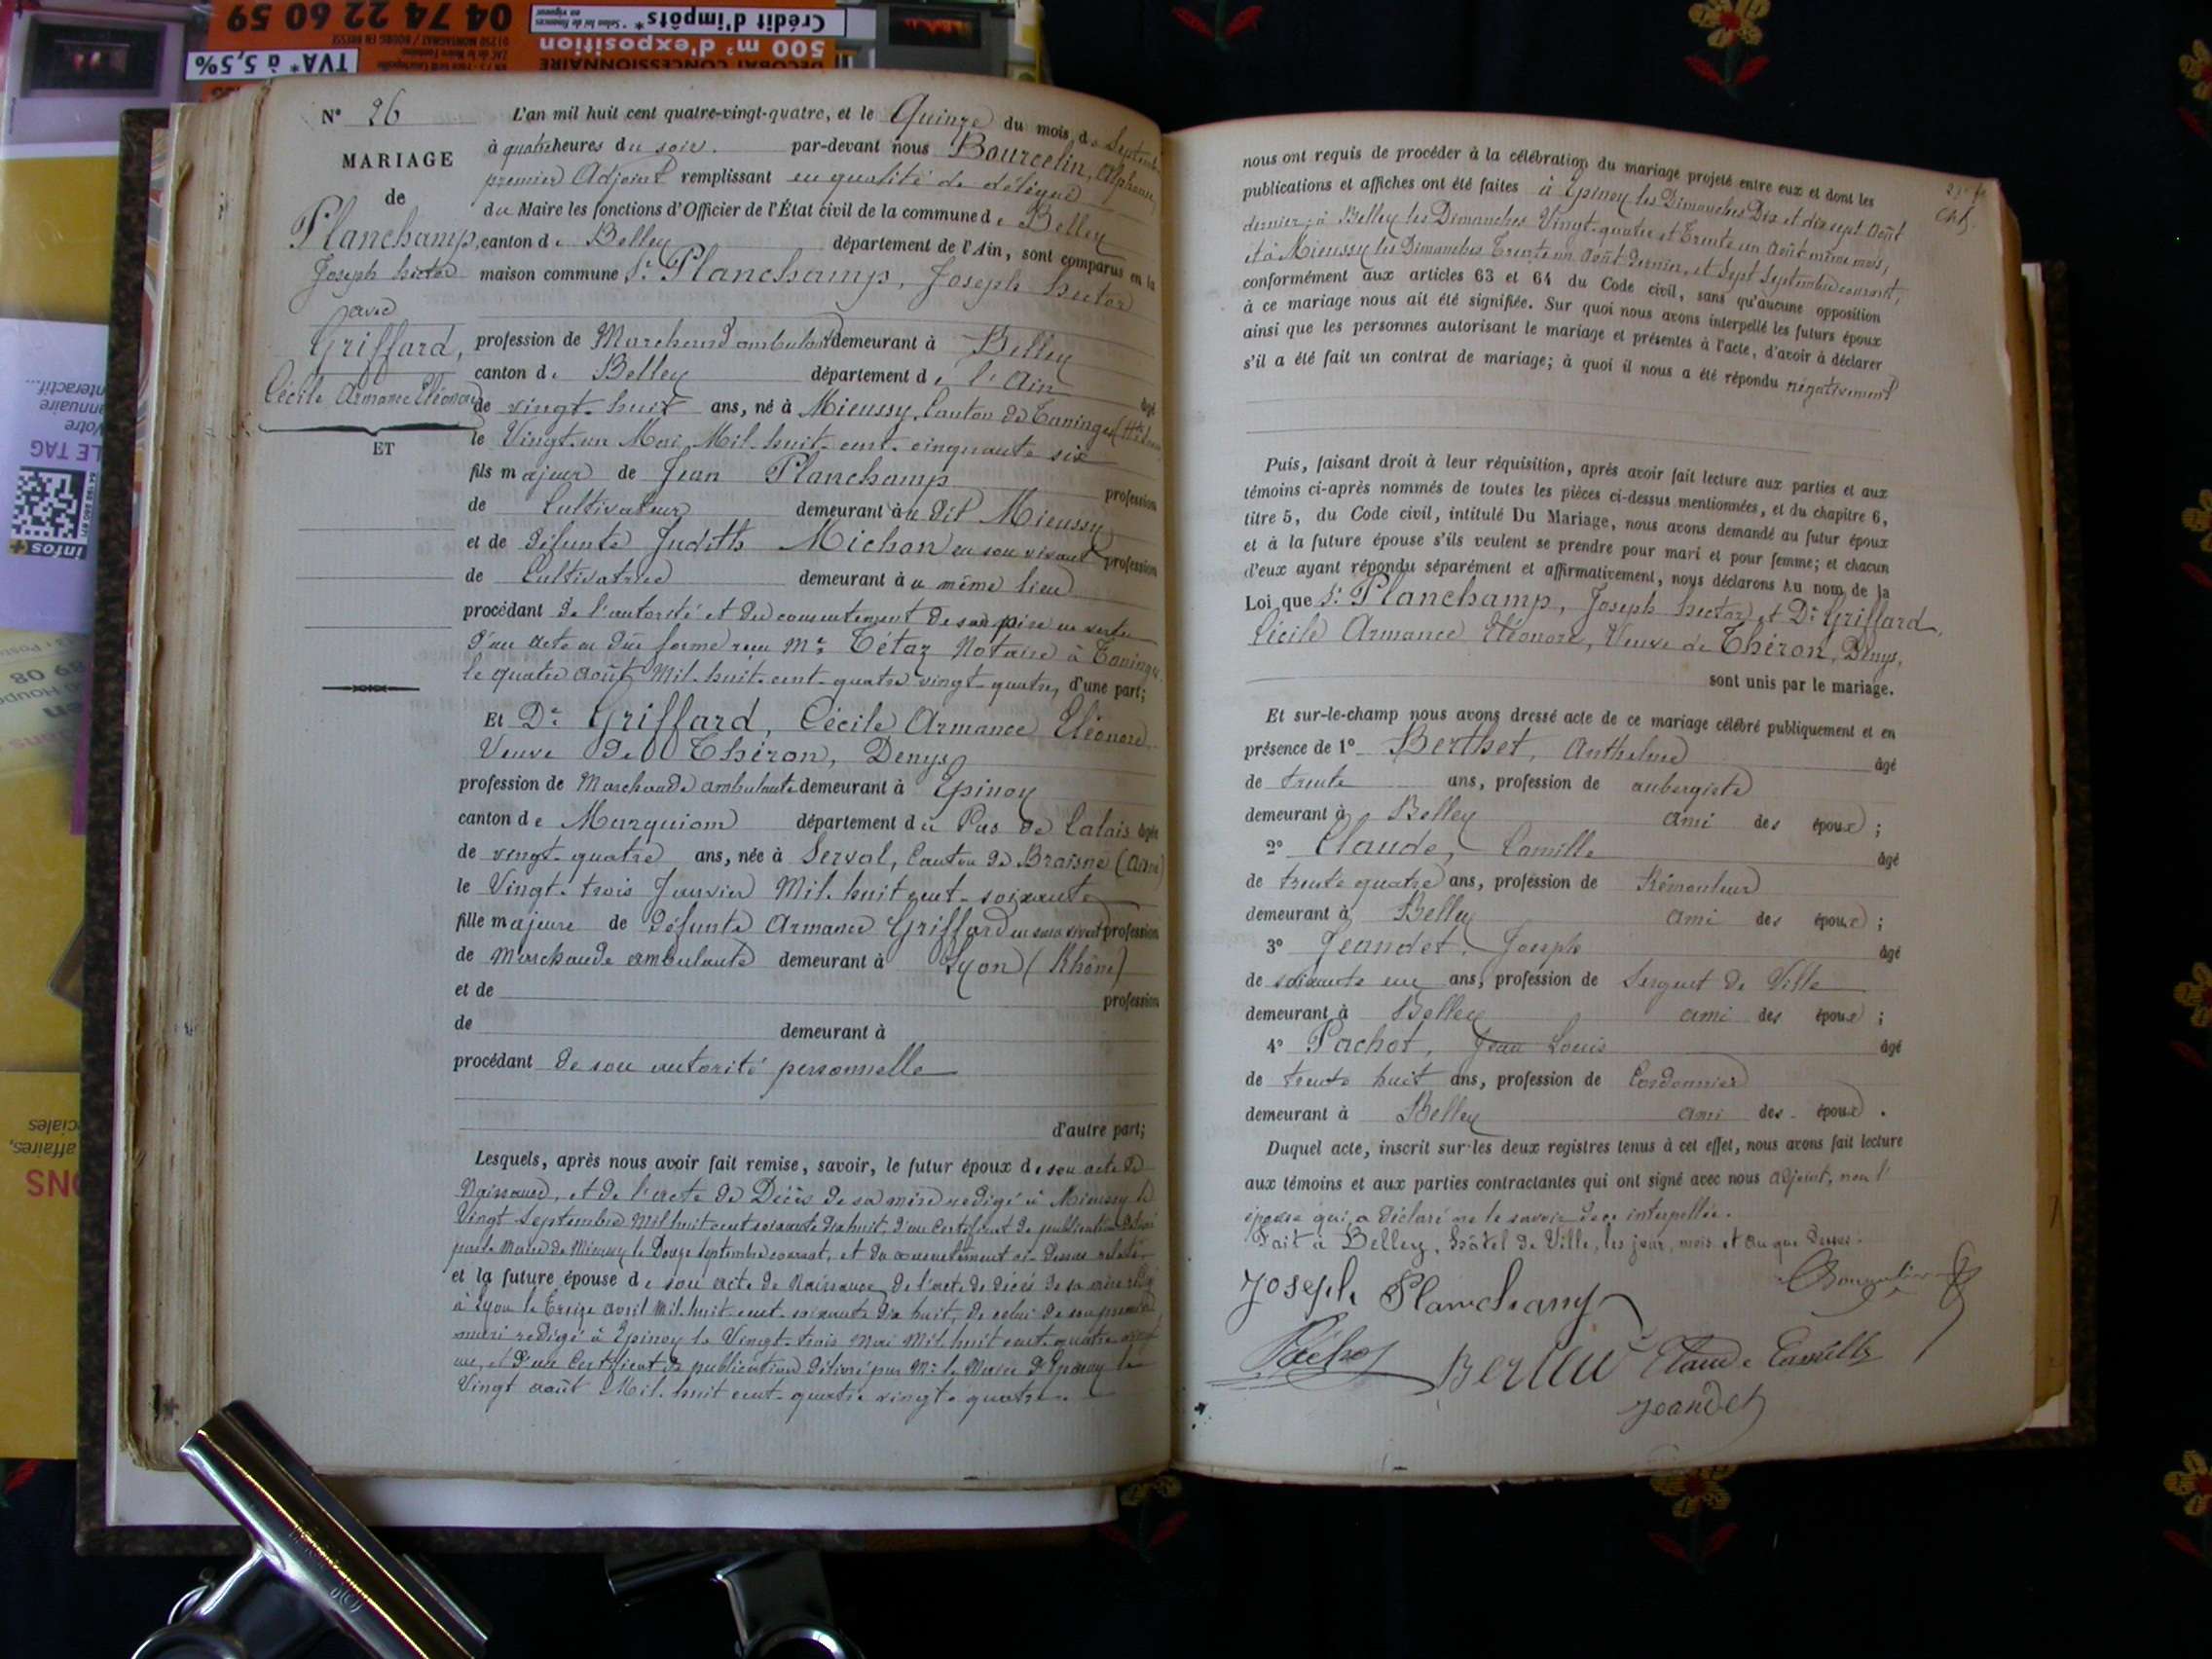 04 74 22 60 59
Crédit d'impôts*
500 m² d'exposition
DECOBAT CONCESSIONNAIRE
TVA* à 5,5%
N° 26
MARIAGE
de
Planchamp,
Joseph hector
avec
Griffard,
Cécile Armance Eléonore
ET
L'an mil huit cent quatre-vingt-quatre, et le Quinze du mois de Septembre
à quatre heures du soir. par-devant nous Bourcelin, Alphonse,
premier Adjoint remplissant en qualité de délégué
du Maire les fonctions d'Officier de l'État civil de la commune de Belley
canton de Belley département de l'Ain, sont comparus en la
maison commune Sr Planchamp, Joseph hector
profession de Marchand ambulant demeurant à Belley
canton de Belley département de l'Ain âgé
de vingt-huit ans, né à Mieussy, Canton de Taninges
le Vingt-un Mai Mil-huit-cent-cinquante six
fils majeur de Jean Planchamp profession
de Cultivateur demeurant au dit Mieussy
et de défunte Judith Michon en son vivant profession
de Cultivatrice demeurant au même lieu
procédant de l'autorité et du consentement de son père en vertu
d'un acte en dûe forme reçu Me Tétaz Notaire à Taninges
le quatre août Mil-huit-cent-quatre vingt-quatre, d'une part;
Et De Griffard, Cécile Armance Eléonore
Veuve de Théron, Denys
profession de Marchande ambulante demeurant à Epinoy
canton de Marquiom département du Pas de Calais âgée
de vingt-quatre ans, née à Serval, Canton de Braisne (Aisne)
le Vingt-trois Janvier Mil-huit-cent-soixante
fille majeure de défunte Armance Griffard en son vivant profession
de Marchande ambulante demeurant à Lyon (Rhône)
et de profession
de demeurant à
procédant de son autorité personnelle
d'autre part;
Lesquels, après nous avoir fait remise, savoir, le futur époux de son acte de
Naissance, et de l'acte de Décès de sa mère redigé à Mieussy le
Vingt Septembre Mil huit cent soixante dix huit, d'un Certificat de publication délivré
par le Maire de Mieussy le Douze Septembre courant, et du consentement ci-dessus relaté
et la future épouse de son acte de Naissance, de l'acte de décès de sa mère redigé
à Lyon le Treize avril Mil-huit-cent-soixante dix huit, de celui de son premier
mari redigé à Epinoy le Vingt-trois Mai Mil huit cent-quatre vingt
un, et d'un Certificat de publication délivré par Mr le Maire d'Epinoy le
Vingt août Mil-huit-cent-quatre vingt-quatre.
nous ont requis de procéder à la célébration du mariage projeté entre eux et dont les
publications et affiches ont été faites à Epinoy les Dimanches Dix et dix sept Août
dernier; à Belley les Dimanches Vingt-quatre et Trente un Août même mois,
et à Mieussy les Dimanches Trente un Août dernier, et Sept Septembre courant,
conformément aux articles 63 et 64 du Code civil, sans qu'aucune opposition
à ce mariage nous ait été signifiée. Sur quoi nous avons interpellé les futurs époux
ainsi que les personnes autorisant le mariage et présentes à l'acte, d'avoir à déclarer
s'il a été fait un contrat de mariage; à quoi il nous a été répondu négativement
Puis, faisant droit à leur réquisition, après avoir fait lecture aux parties et aux
témoins ci-après nommés de toutes les pièces ci-dessus mentionnées, et du chapitre 6,
titre 5, du Code civil, intitulé Du Mariage, nous avons demandé au futur époux
et à la future épouse s'ils veulent se prendre pour mari et pour femme; et chacun
d'eux ayant répondu séparément et affirmativement, nous déclarons Au nom de la
Loi que Sr Planchamp, Joseph hector et De Griffard,
Cécile Armance Eléonore, Veuve de Théron, Denys,
sont unis par le mariage.
Et sur-le-champ nous avons dressé acte de ce mariage célébré publiquement et en
présence de 1° Berthet, Anthelme âgé
de trente ans, profession de aubergiste
demeurant à Belley ami des époux;
2° Claude, Camille âgé
de trente quatre ans, profession de Rémouleur
demeurant à Belley ami des époux;
3° Jeandet, Joseph âgé
de soixante un ans, profession de Sergent de Ville
demeurant à Belley ami des époux;
4° Pachot, Jean Louis âgé
de trente huit ans, profession de Cordonnier
demeurant à Belley ami des époux.
Duquel acte, inscrit sur les deux registres tenus à cet effet, nous avons fait lecture
aux témoins et aux parties contractantes qui ont signé avec nous Adjoint, non l'
épouse qui a déclaré ne le savoir de ce interpellée.
Fait à Belley, hôtel de Ville, les jour, mois et an que dessus.
Joseph Planchamp
Pachot Berthet Claude Camille
Jeandet